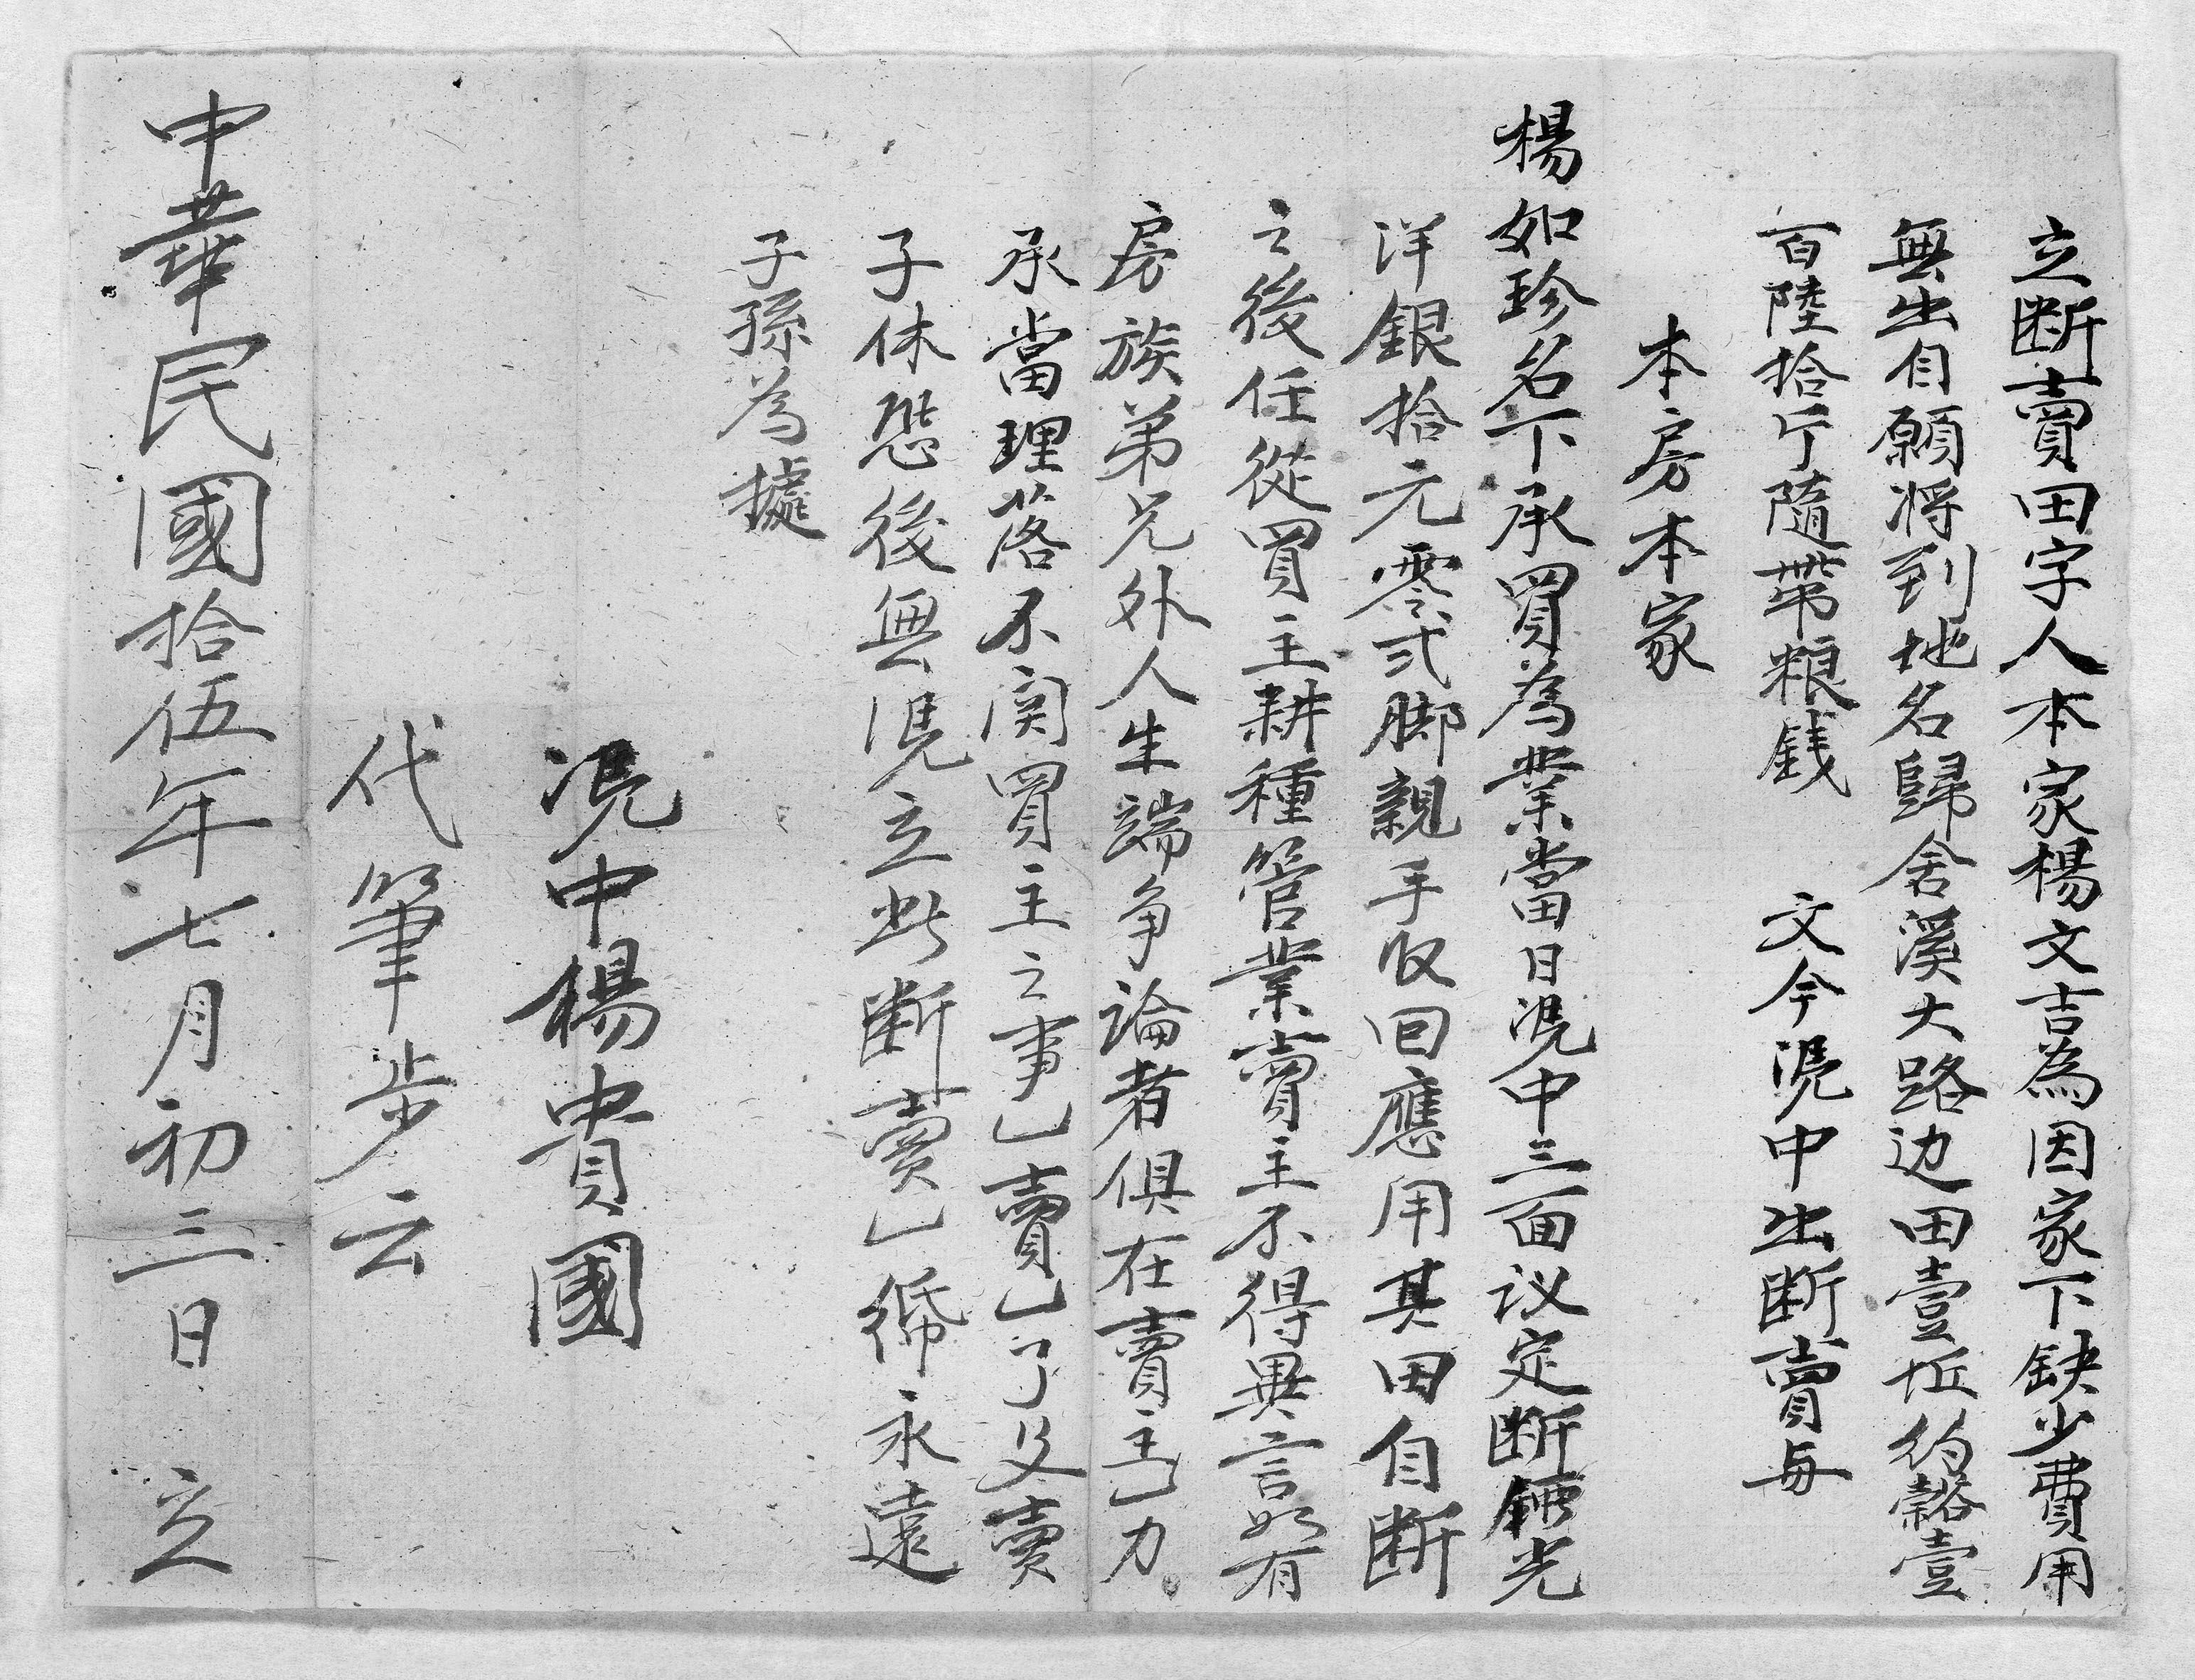 立断賣田字人本家楊文吉為因家下缺少費用
無出自願将到地名歸舍溪大路边田壹坵約穀壹
百陸拾斤隨帶粮銭 文今凴中出断賣與
本房本家
楊如珍名下承買為業當日凴中三面议定断價光
洋銀拾元零弍脚親手收回應用其田自断
之後任從買主耕種管業賣主不得異言如有
房族弟兄外人生端争論者俱在賣主乙力
承當理落不関買主之事乙賣乙了父賣
子休恐後無凴立此断賣乙紙永遠
子孫為據
凴中楊貴國
代筆步云
中華民國拾伍年七月初三日 立